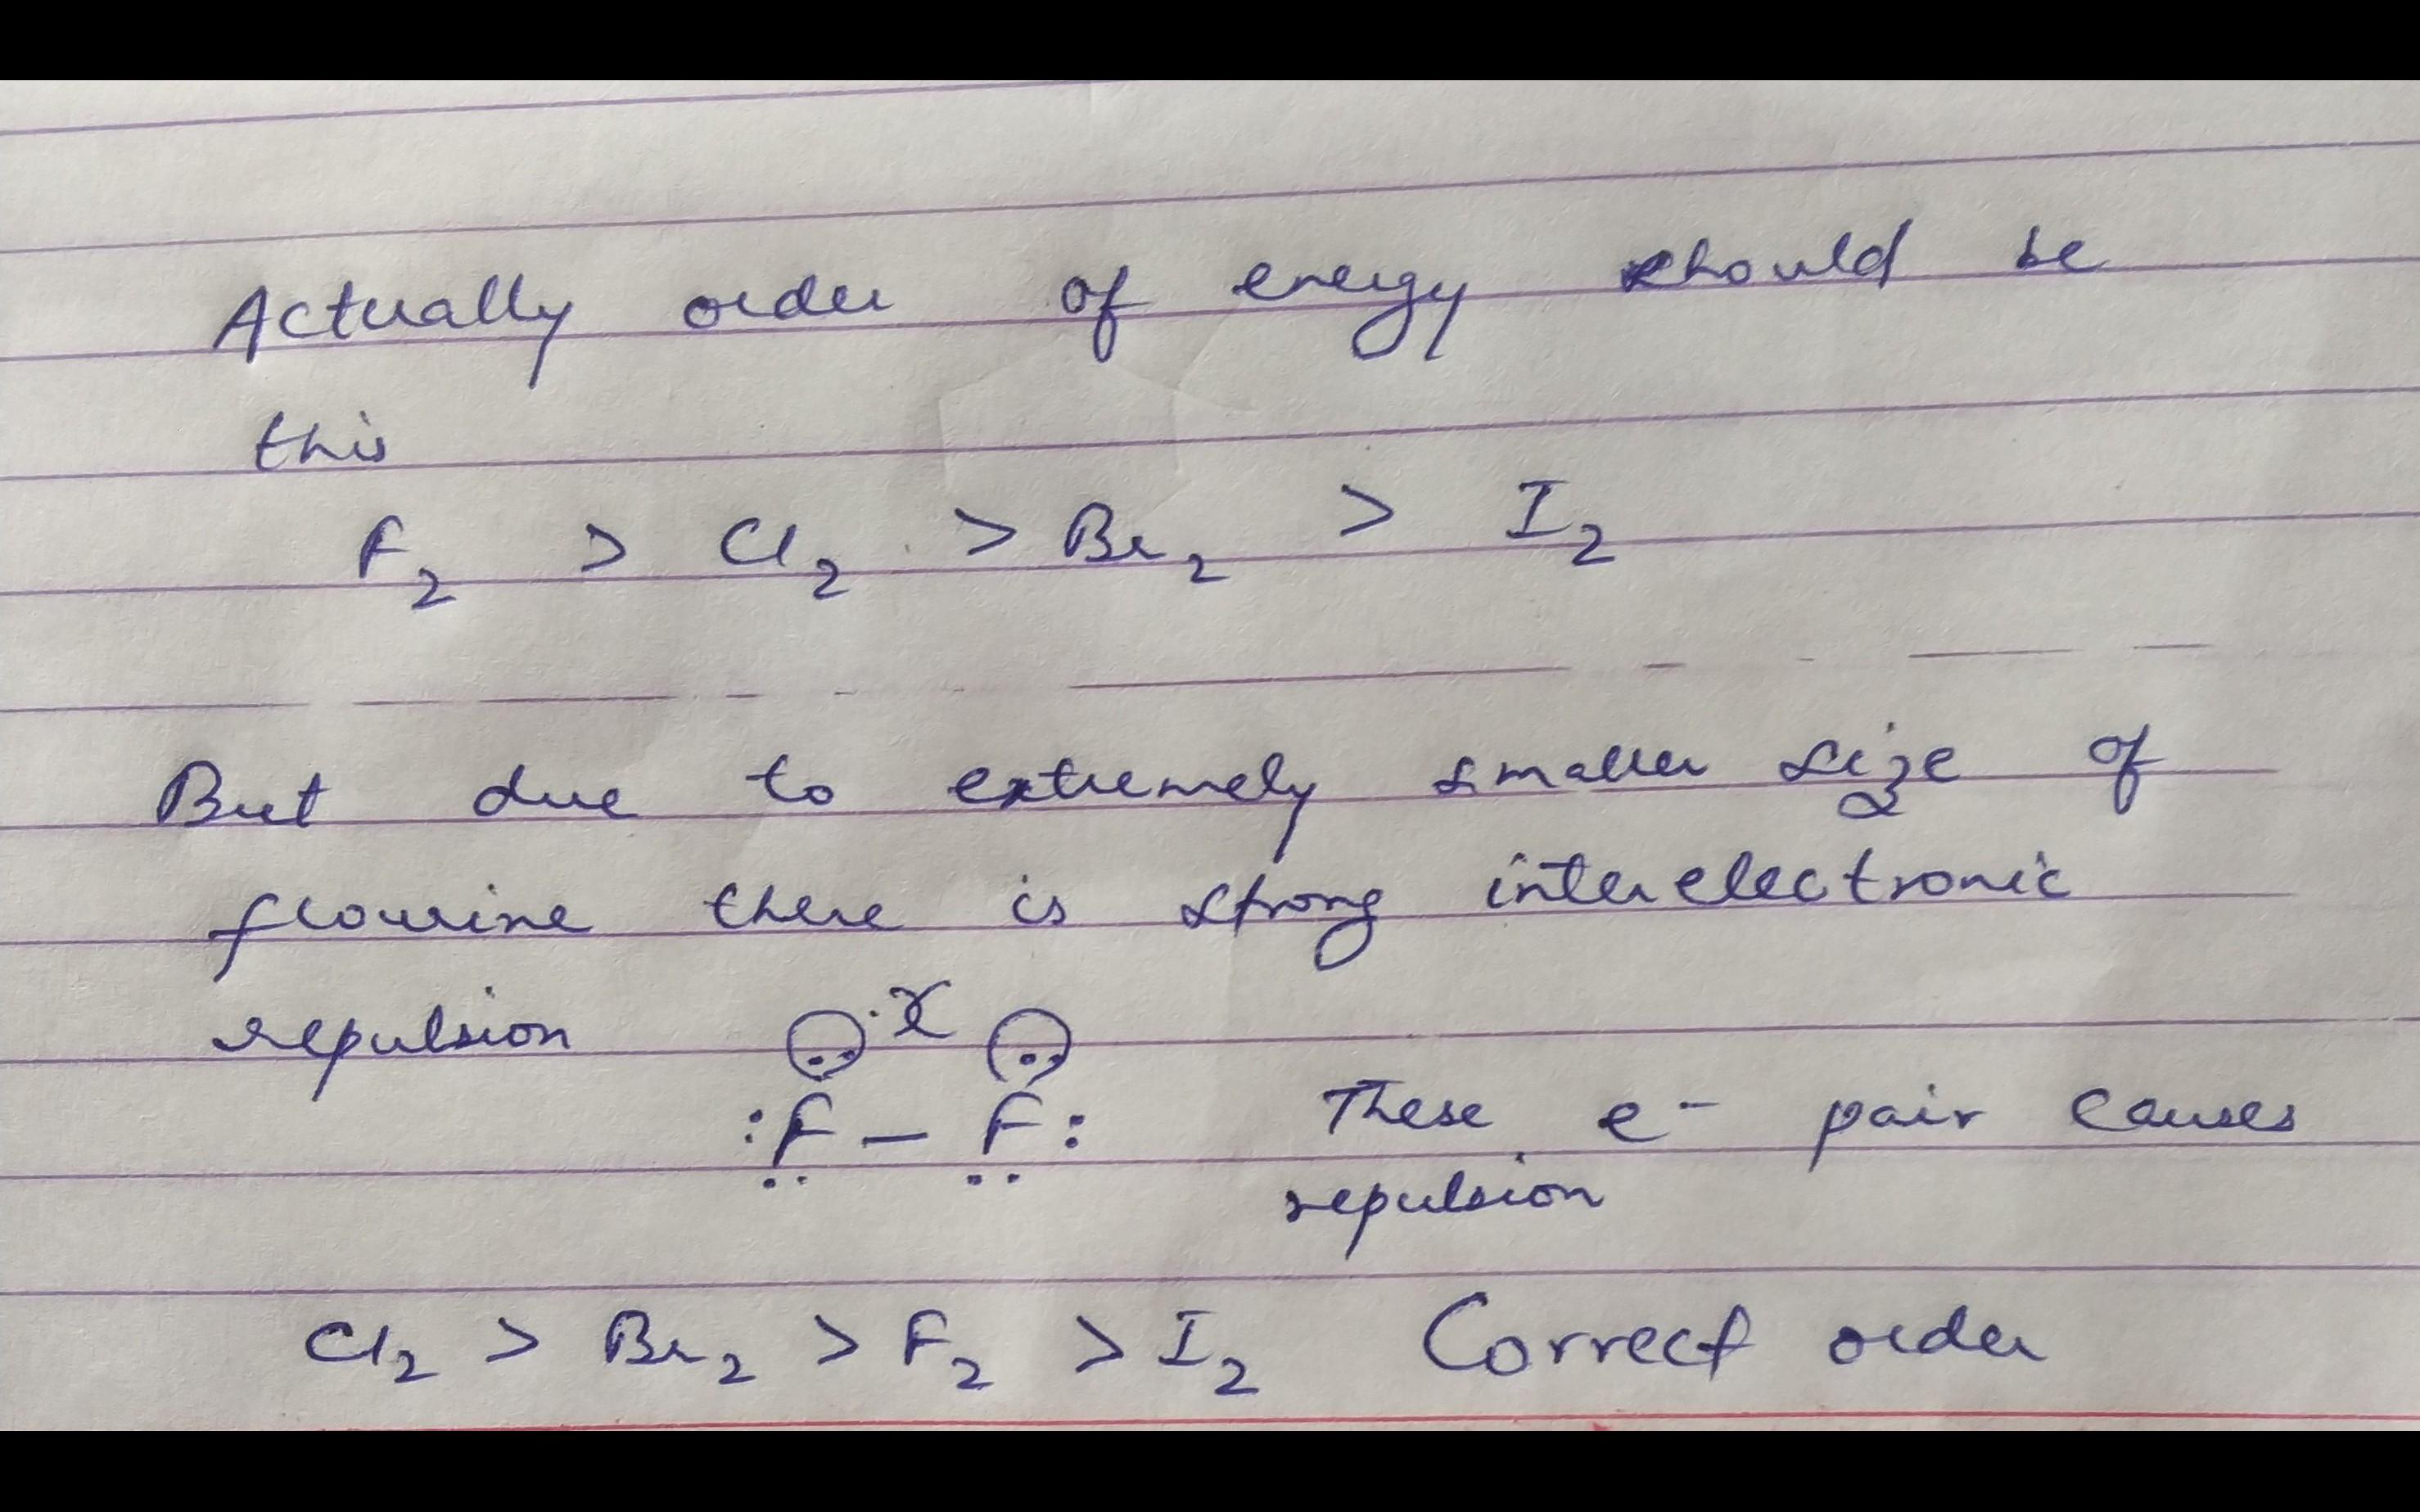 Actually order of energy should be
this
F2 > Cl2 > Br2 > I2
But due to extremely smaller size of
flourine there is strong interelectronic
repulsion x
:F – F: These e- pair causes
repulsion
Cl2 > Br2 > F2 > I2 Correct order